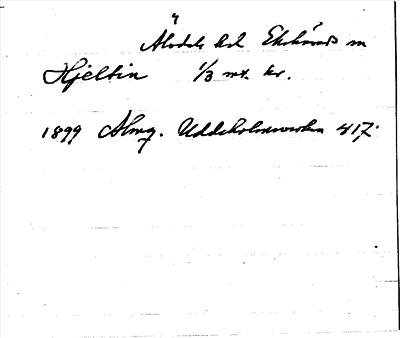 Älvdals hd Ekshärads sn
Hjeltin 1/3 mt. kr.
1899 Almq. Uddeholmsverken 417.